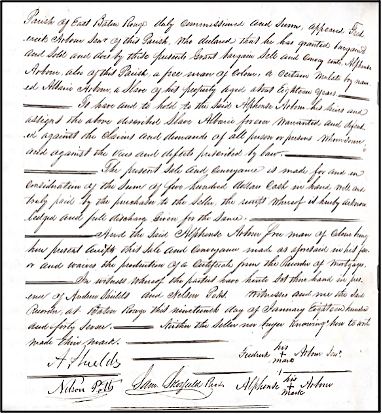 Parish of East Baton Rouge duly Commissioned and Sworn, appeared Fred
erick Arbour Senr. of this Parish, Who declared that he has granted bargained
and Sold and does by these presents Grant bargain Sell and Convey unto Alphonse
Arbour, also of this Parish, a free man of Colour, a Certain Mulatto boy nam
ed Albérie Arbour, a Slave of his property aged about Eighteen years
To have and to hold to the Said Alphonse Arbour his heirs and
assigns the above described Slave Albérie forever Warranted, and defend
ed against the Claims and demands of all person or persons Whomsoever
and against the vices and defects prescribed by law.
The present Sale and Conveyance is made for and in
Consideration of the Sum of five hundred dollars Cash in hand well and
truly paid by the purchaser to the Seller, the receipt Whereof is hereby acknow
ledged and full discharge Given for the Same.
And the Said Alphonse Arbour free man of Colour being
here present accepts this Sale and Conveyance made as aforesaid in his fav
or and waives the production of a Certificate from the Recorder of Mortgages
In witness whereof the parties have hereto Set their hand in pres
ence of Andrew Shields and Nelson Potts Witnesses and me the Said
Recorder, at Baton Rouge this nineteenth day of January Eighteen hundred
and forty Seven. Neither the Seller nor buyer Knowing how to write
made their marks.
A Shields Frederick his + mark Arbour Senr.
Nelson Potts Alphonse his + mark Arbour